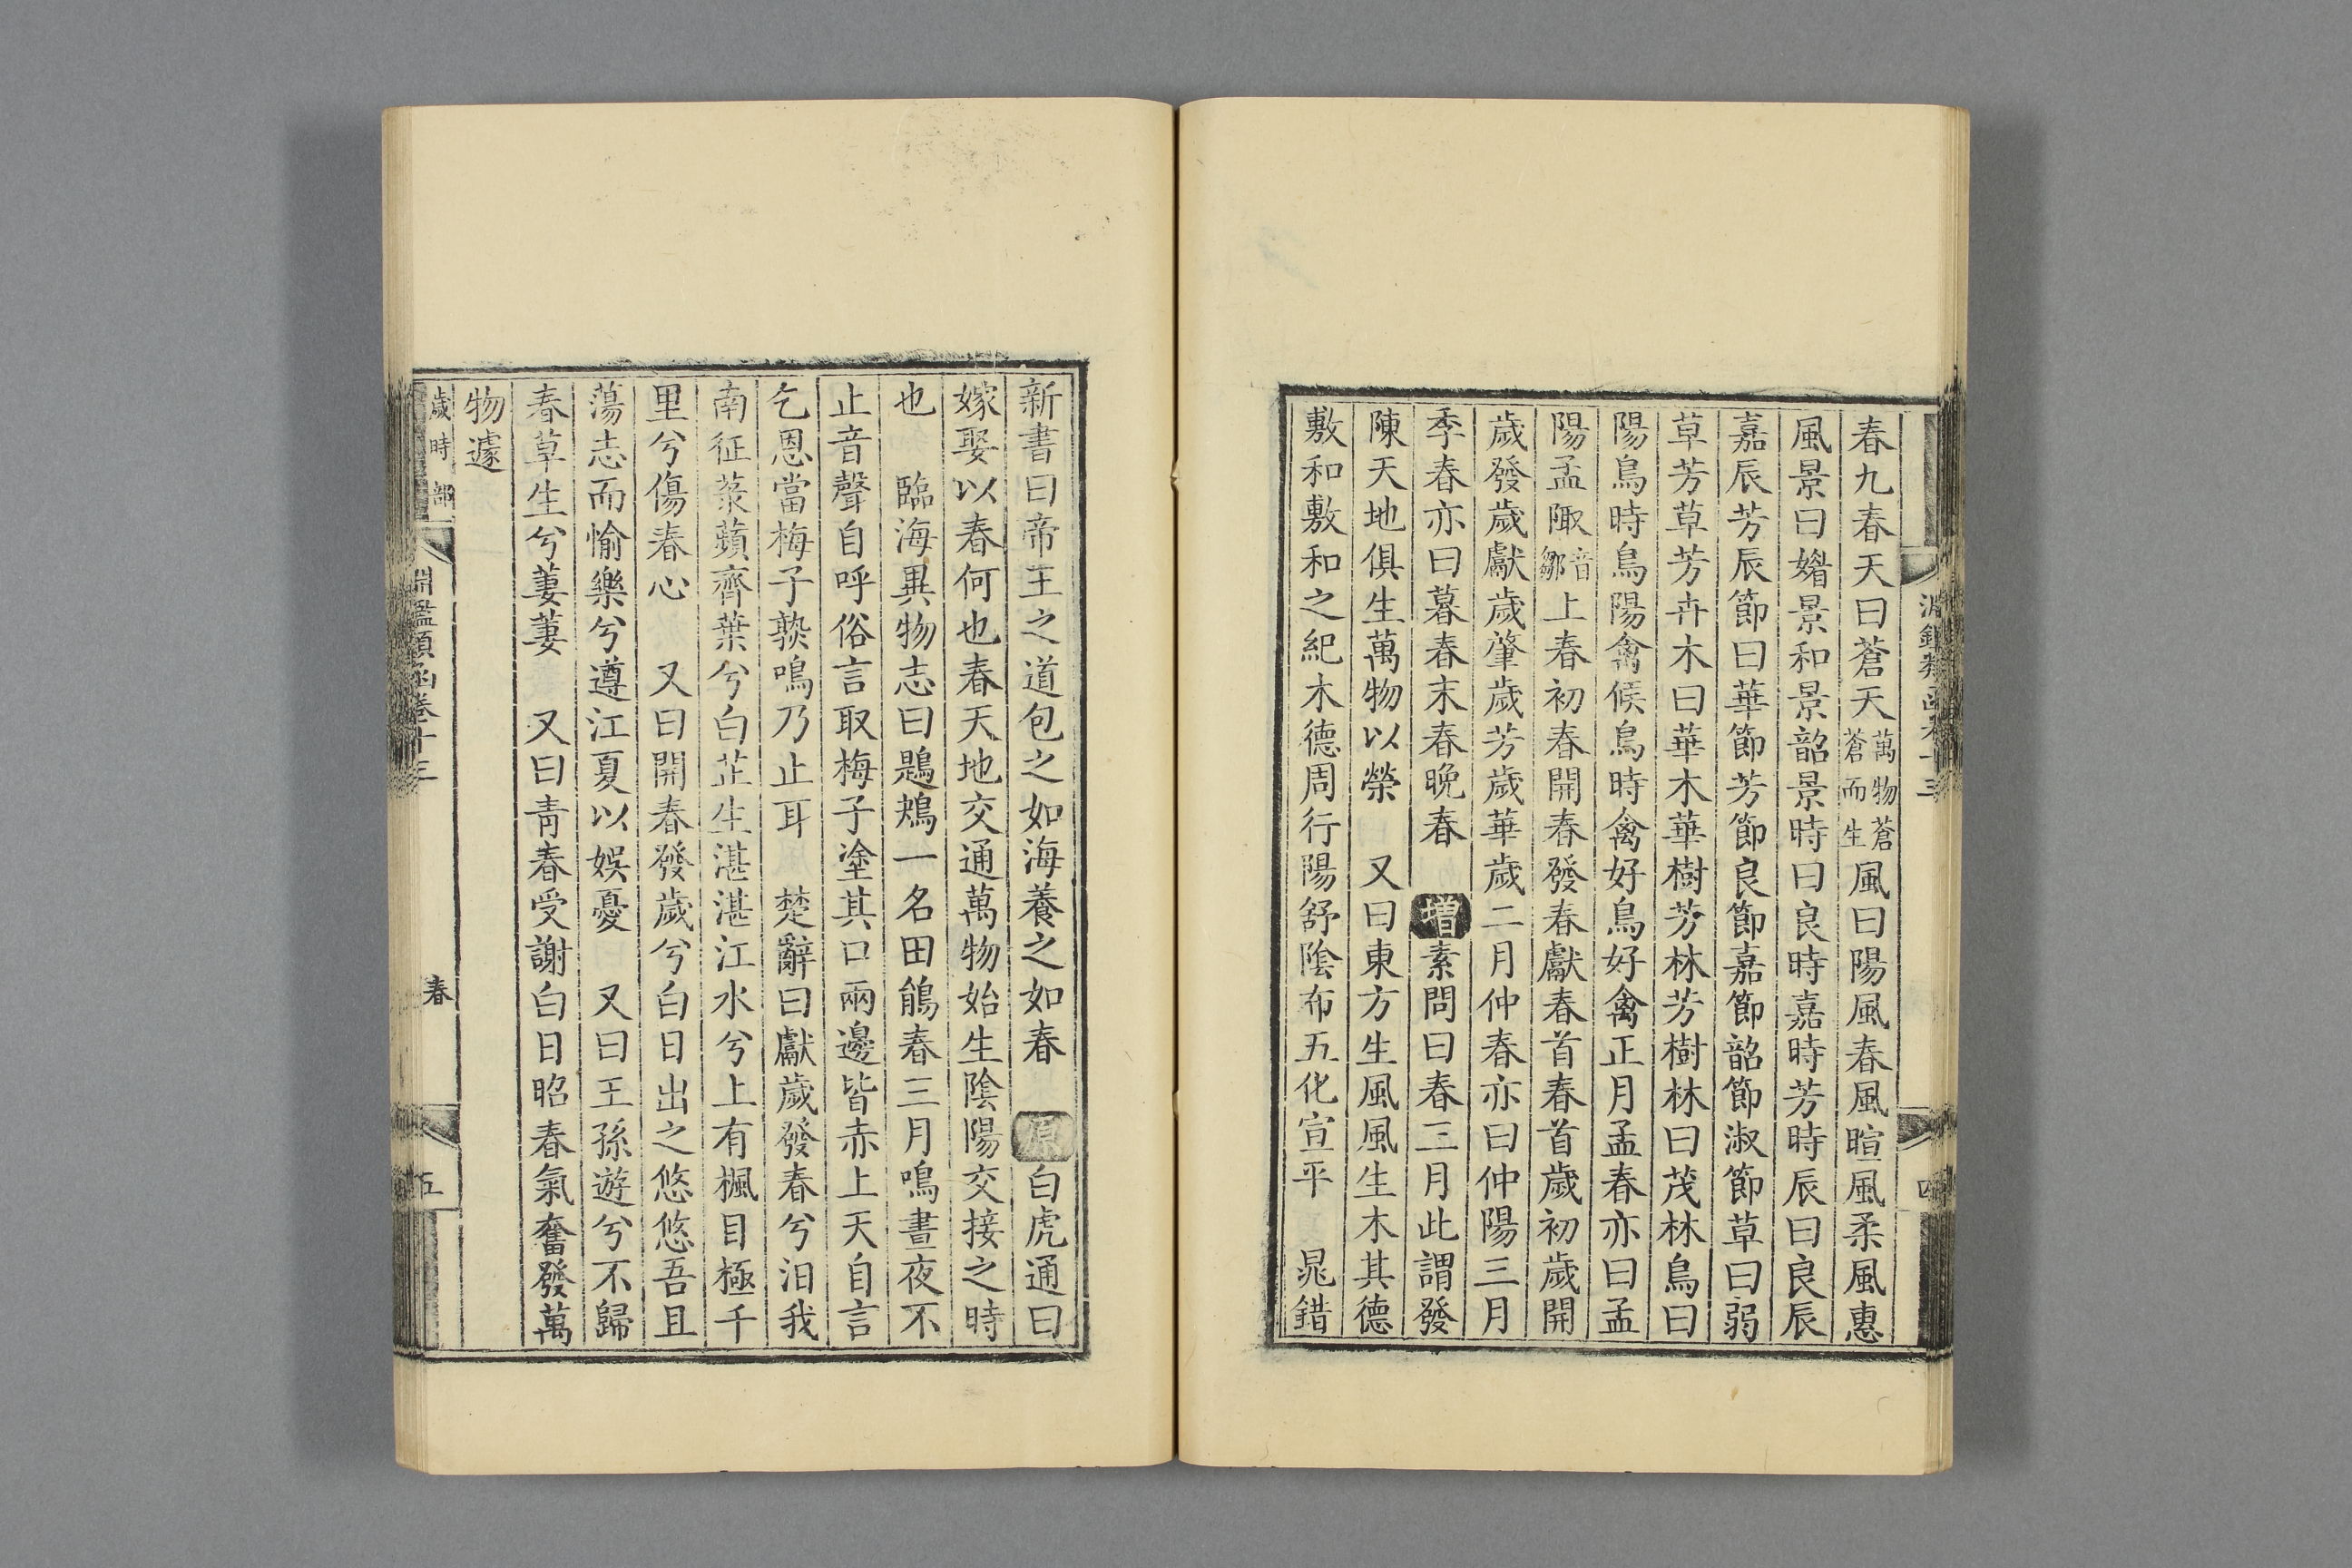 春九春天曰蒼天萬物蒼蒼而生風曰陽風春風暄風柔風惠
風景曰媚景和景韶景時曰良時嘉時芳時辰曰良辰
嘉辰芳辰節曰華節芳節良節嘉節韶節淑節草曰弱
草芳草芳卉木曰華木華樹芳林芳樹林曰茂林鳥曰
陽鳥時鳥陽禽候鳥時禽好鳥好禽正月孟春亦曰孟
陽孟陬音鄒上春初春開春發春獻春首春首歲初歲開
歲發歲獻歲肇歲芳歲華歲二月仲春亦曰仲陽三月
季春亦曰暮春末春晚春 增素問曰春三月此謂發
陳天地俱生萬物以榮 又曰東方生風風生木其德
敷和敷和之紀木德周行陽舒陰布五化宣平 晁錯
淵鑑類函卷十三
四
新書曰帝王之道包之如海養之如春 原白虎通曰
嫁娶以春何也春天地交通萬物始生陰陽交接之時
也 臨海異物志曰鶗鴂一名田鵑春三月鳴晝夜不
止音聲自呼俗言取梅子塗其口兩邊皆赤上天自言
乞恩當梅子孰鳴乃止耳 楚辭曰獻歲發春兮汩我
南征菉蘋齊葉兮白芷生湛湛江水兮上有楓目極千
里兮傷春心 又曰開春發歲兮白日出之悠悠吾且
蕩志而愉樂兮遵江夏以娛憂 又曰王孫遊兮不歸
春草生兮萋萋 又曰青春受謝白日昭春氣奮發萬
物遽
歲時部
淵鑑類函卷十三
春
五